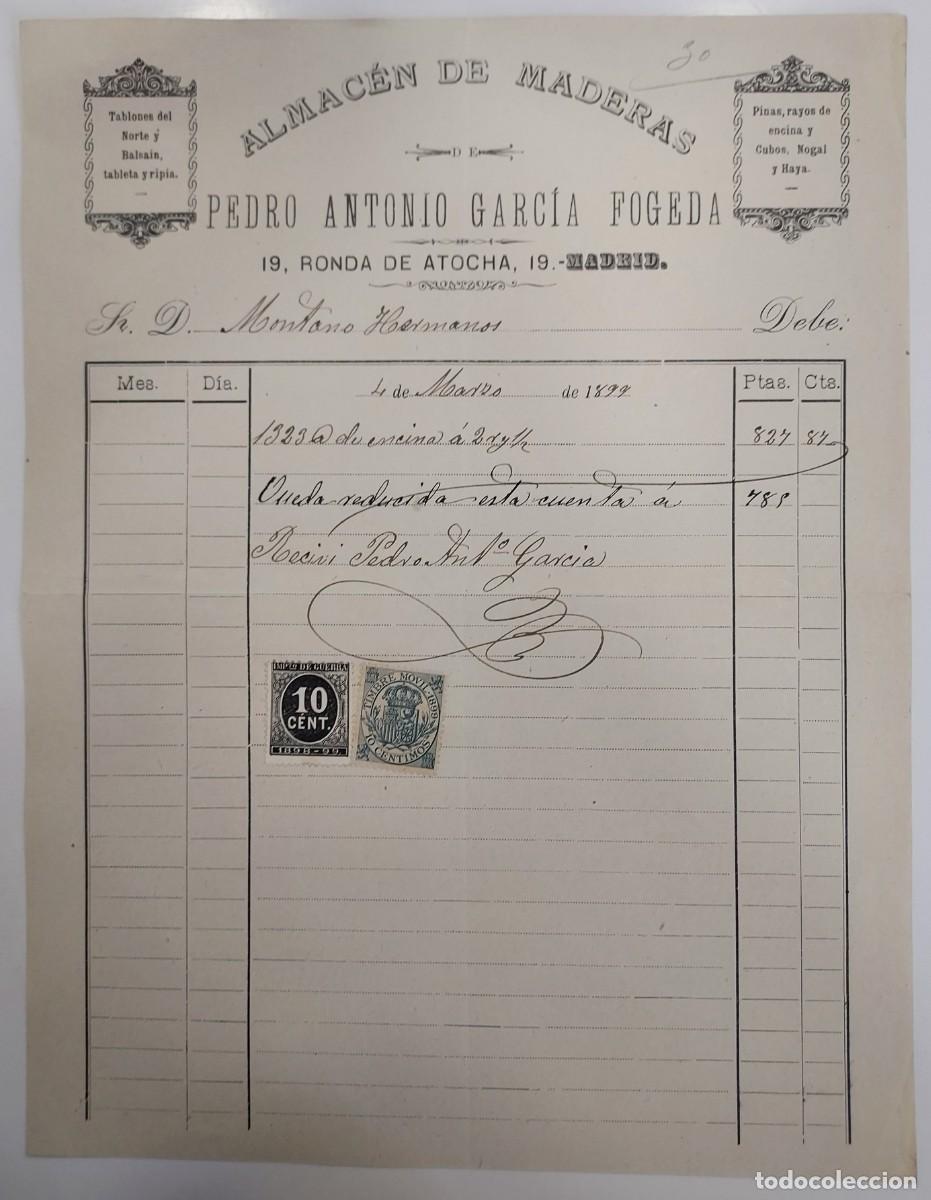 30
ALMACÉN DE MADERAS
Tablones del
Norte y
Balsain,
tableta y ripia.
Pinas, rayos de
encina y
Cubos, Nogal
y Haya.
DE
PEDRO ANTONIO GARCÍA FOGEDA
19, RONDA DE ATOCHA, 19.-MADRID.
Sr. D. Montano Hermanos Debe:
Mes. Día. 4 de Marzo de 1899 Ptas. Cts.
1323 @ de encina á 2 827 87
Queda reducida esta cuenta á 785
Recivi Pedro Antº Garcia
IMPto DE GUERRA
10
CÉNT.
1898-99
TIMBRE MOVIL-1899
10 CENTIMOS
todocoleccion